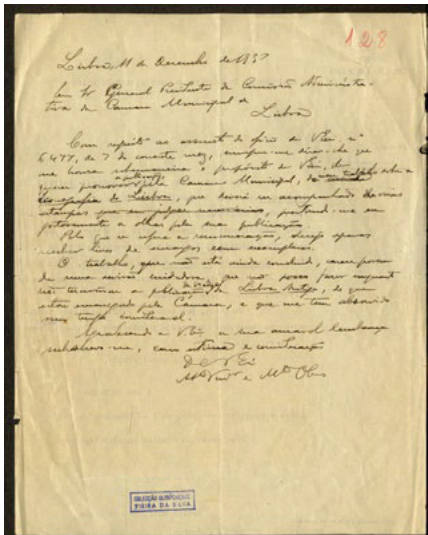 128
Lisboa, 11 de Dezembro de 1937
Snr General Presidente da Comissão Administra-
tiva da Camara Municipal de
Lisboa
Com respeito ao assunto do ofício de V. Ex. nº
6477, de 7 do corrente mez, cumpre-me dizer-lhe que
me honra o propósito de V. Ex., de
querer promover pela Camara Municipal, a
de Lisboa, que deverá ser acompanhado de várias
estampas, prestando-me eu
gostosamente a olhar pela sua publicação.
Pelo que se refere a remuneração, desejo apenas
receber livres de encargos cem exemplares.
O trabalho, que não está ainda concluido, carece porém
de uma revisão cuidadosa, que não posso fazer enquanto
não terminar a publicação da Lisboa Antiga, de que
estou encarregado pela Câmara, e que me tem absorvido
meu tempo.
Agradecendo a V. Ex. a sua amavel lembrança
subscrevo-me, com estima e consideração
De V. Ex.
e Mto Obgo
COLECÇÃO OLISIPONENSE
VIEIRA DA SILVA